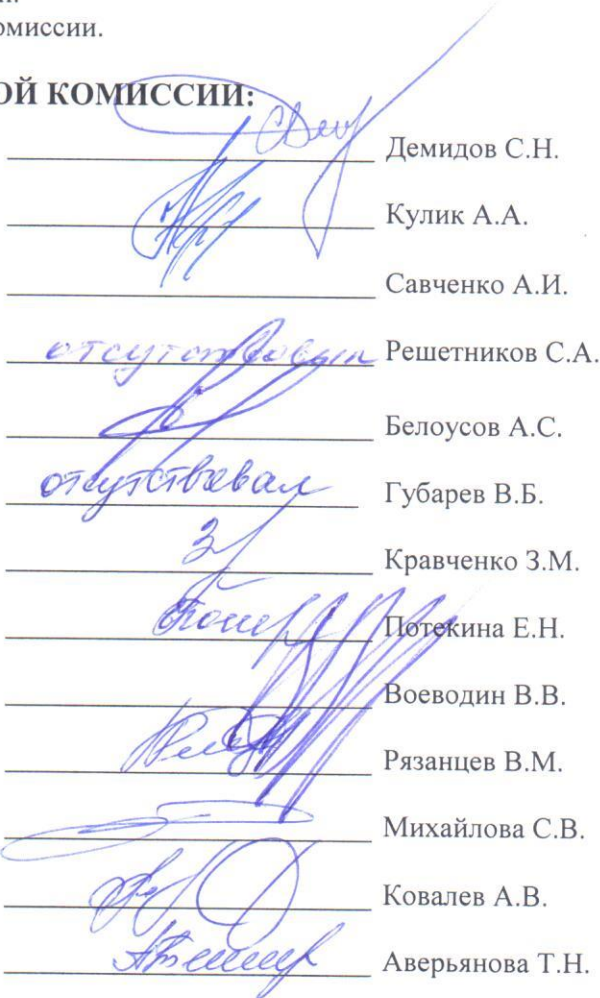 омиссии.
ОЙ КОМИССИИ:
Демидов С.Н.
Кулик А.А.
Савченко А.И.
отсутствовал Решетников С.А.
Белоусов А.С.
отсутствовал Губарев В.Б.
Кравченко З.М.
Потекина Е.Н.
Воеводин В.В.
Рязанцев В.М.
Михайлова С.В.
Ковалев А.В.
Аверьянова Т.Н.